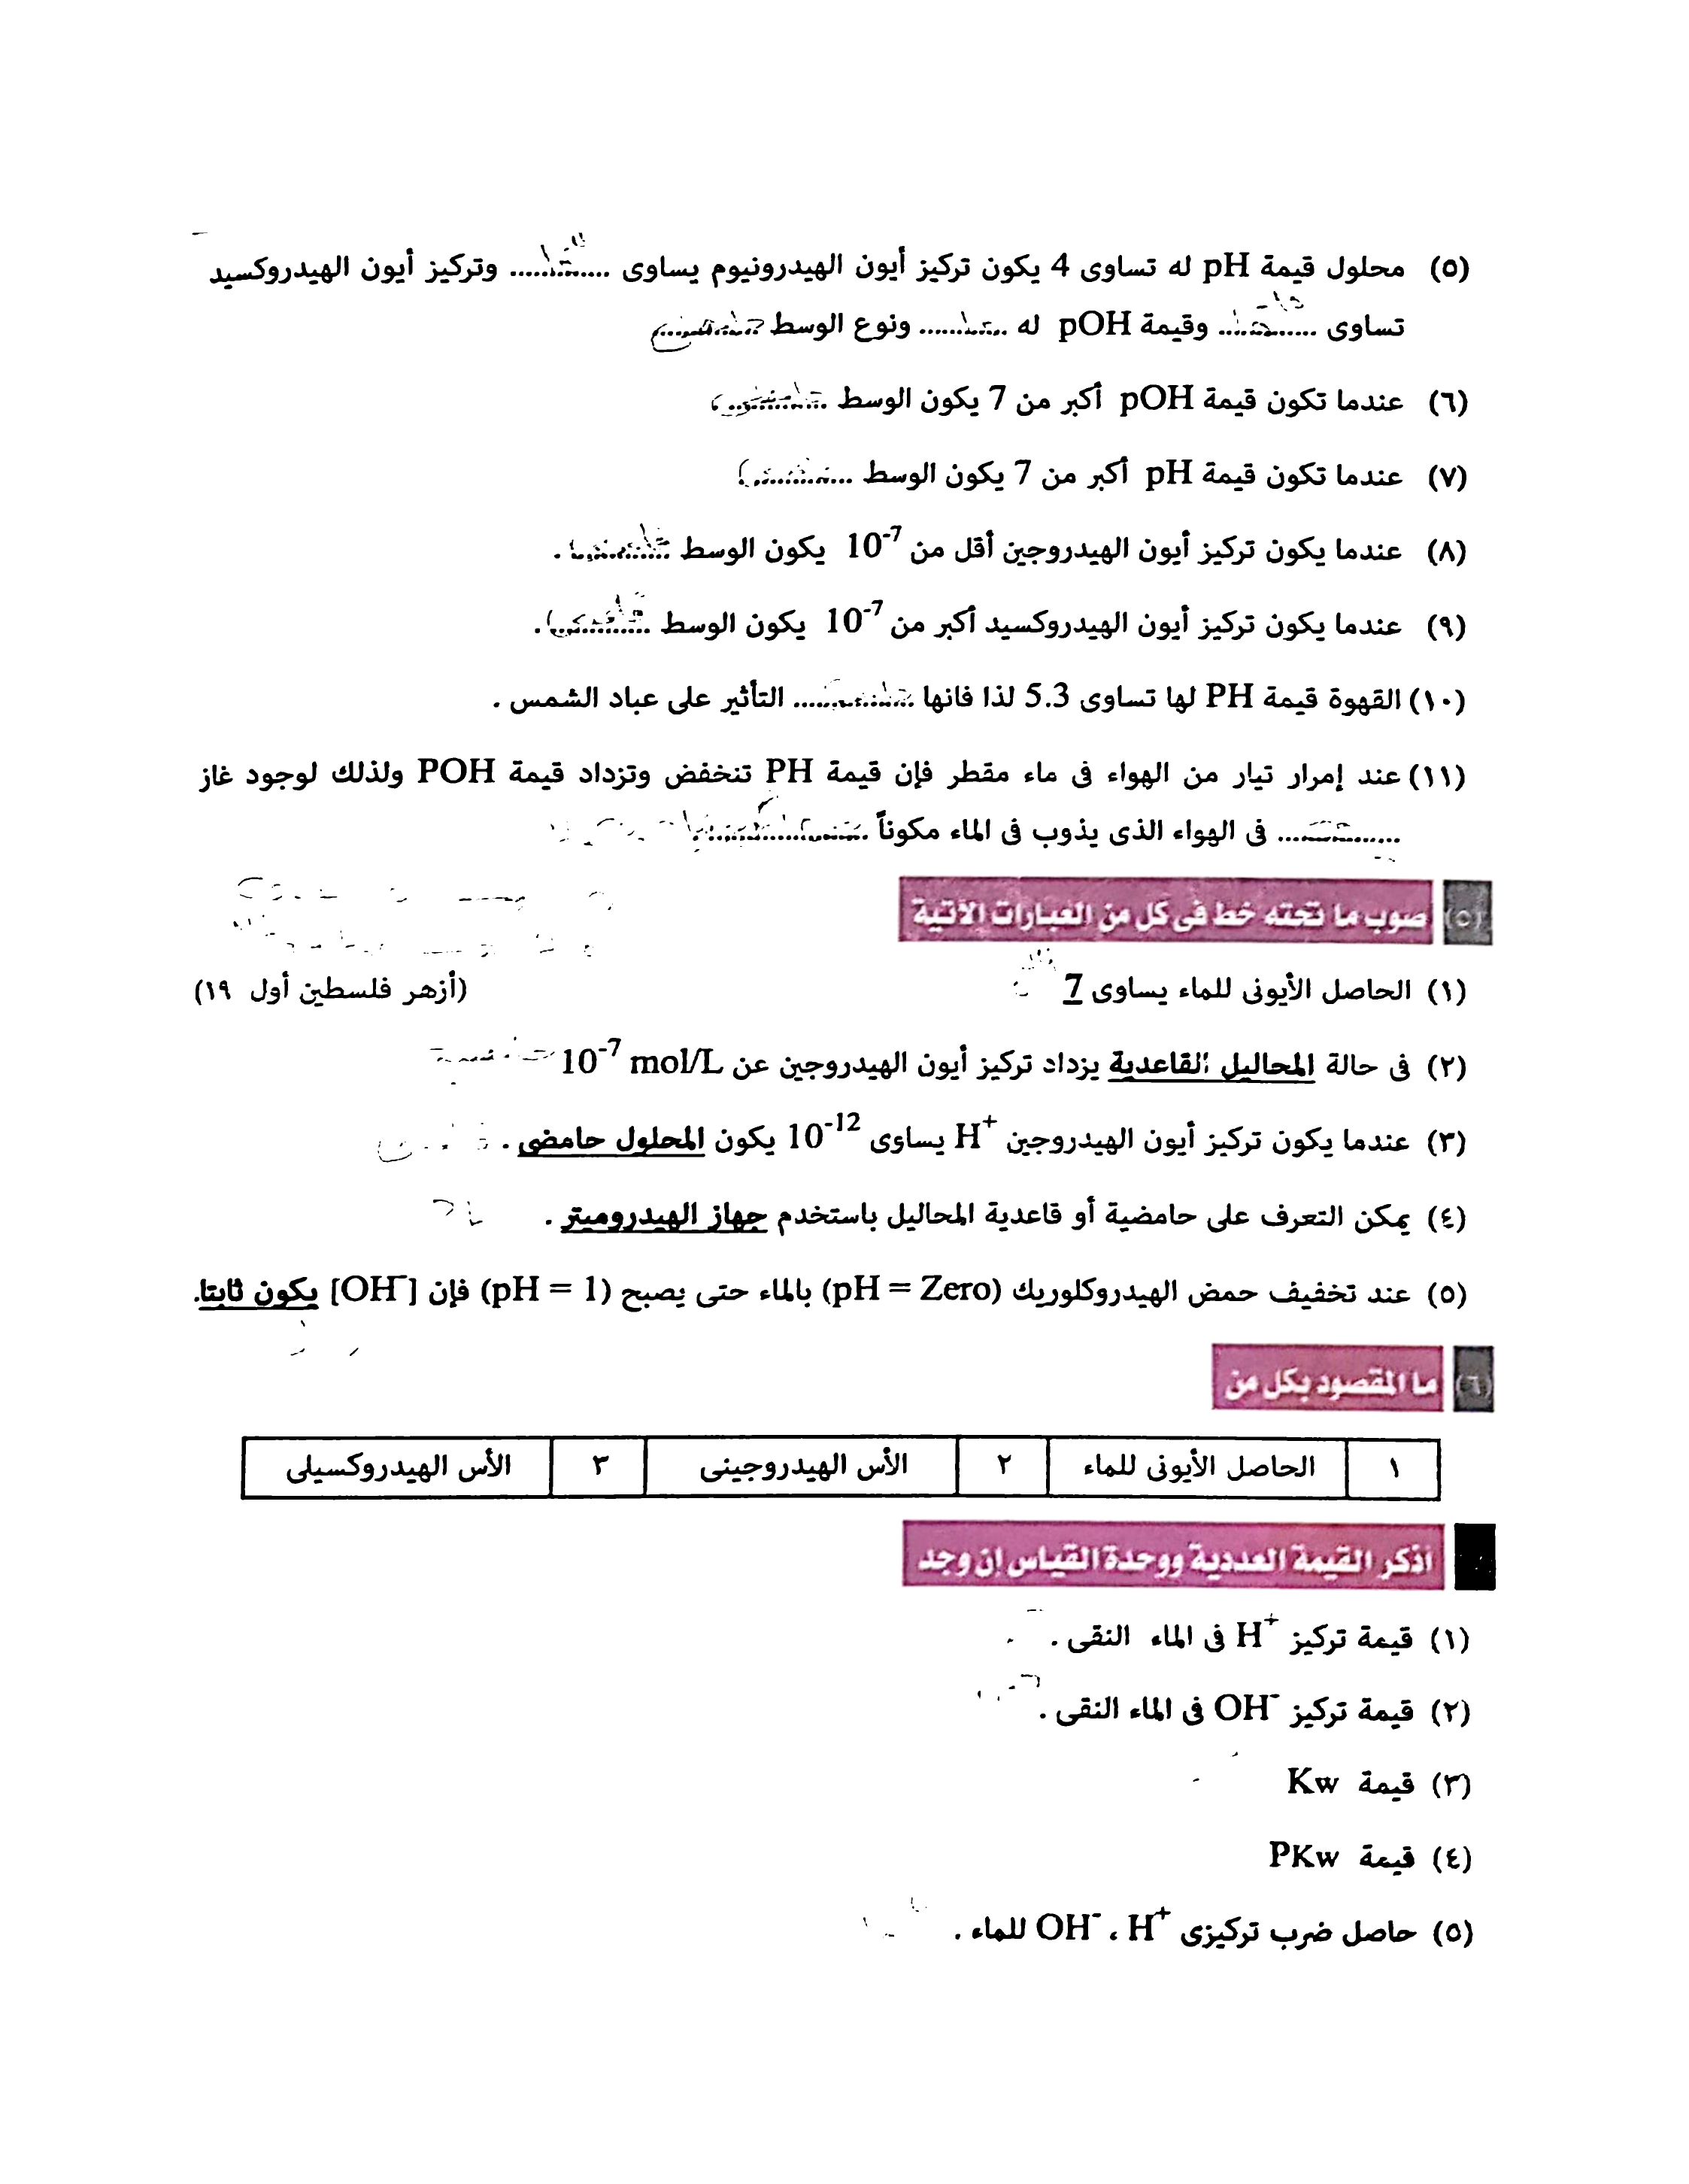 (٥) محلول قيمة pH له تساوى 4 يكون تركيز أيون الهيدرونيوم يساوى .......... وتركيز أيون الهيدروكسيد
تساوى .......... وقيمة pOH له .......... ونوع الوسط ..........
(٦) عندما تكون قيمة pOH أكبر من 7 يكون الوسط ..........
(٧) عندما تكون قيمة pH أكبر من 7 يكون الوسط ..........
(٨) عندما يكون تركيز أيون الهيدروجين أقل من 10⁻⁷ يكون الوسط .......... .
(٩) عندما يكون تركيز أيون الهيدروكسيد أكبر من 10⁻⁷ يكون الوسط .......... .
(١٠) القهوة قيمة PH لها تساوى 5.3 لذا فانها .......... التأثير على عباد الشمس .
(١١) عند إمرار تيار من الهواء فى ماء مقطر فإن قيمة PH تنخفض وتزداد قيمة POH ولذلك لوجود غاز
.......... فى الهواء الذى يذوب فى الماء مكوناً ..........
(٥) صوب ما تحته خط فى كل من العبارات الاتية
(١) الحاصل الأيونى للماء يساوى 7 (أزهر فلسطين أول ١٩)
(٢) فى حالة المحاليل القاعدية يزداد تركيز أيون الهيدروجين عن 10⁻⁷ mol/L
(٣) عندما يكون تركيز أيون الهيدروجين H⁺ يساوى 10⁻¹² يكون المحلول حامضى .
(٤) يمكن التعرف على حامضية أو قاعدية المحاليل باستخدم جهاز الهيدروميتر .
(٥) عند تخفيف حمض الهيدروكلوريك (pH = Zero) بالماء حتى يصبح (pH = 1) فإن [OH⁻] يكون ثابتا.
(٦) ما المقصود بكل من
١ الحاصل الأيونى للماء ٢ الأس الهيدروجينى ٣ الأس الهيدروكسيلى
اذكر القيمة العددية ووحدة القياس إن وجد
(١) قيمة تركيز H⁺ فى الماء النقى .
(٢) قيمة تركيز OH⁻ فى الماء النقى .
(٣) قيمة Kw
(٤) قيمة PKw
(٥) حاصل ضرب تركيزى H⁺ ، OH⁻ للماء .